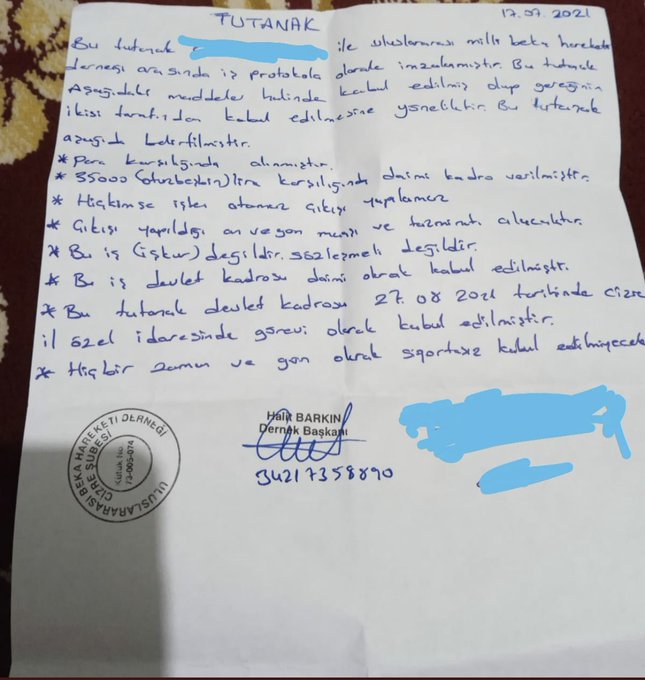 TUTANAK
17.07.2021
Bu tutanak ile uluslararası milli beka hareketi
derneği arasında iş protokola olarak imzalamıştır. Bu tutanak
Aşağıdaki maddeler halinde kabul edilmiş olup gereğinin
ikisi tarafından kabul edilmesine yöneliktir. Bu tutanak
aşağıda belirtilmiştir.
* Para karşılığında alınmıştır.
* 35000 (otuzbeşbin) lira karşılığında daimi kadro verilmiştir.
* Hiçkimse işten atamaz çıkışı yapılamaz
* Çıkışı yapıldığı an ve gün maaşı ve tazminatı alacaktır.
* Bu iş (işkur) değildir. sözleşmeli değildir.
* Bu iş devlet kadrosu daimi olarak kabul edilmiştir.
* Bu tutanak devlet kadrosu 27.08 2021 tarihinde Cizre
il özel idaresinde görevi olarak kabul edilmiştir.
* Hiçbir zaman ve gün olarak sigortasız kabul edilmiyecek
ULUSLARARASI BEKA HAREKETİ DERNEĞİ
CİZRE ŞUBESİ
Kütük No
73-005-074
Halit BARKIN
Dernek Başkanı
34217358890